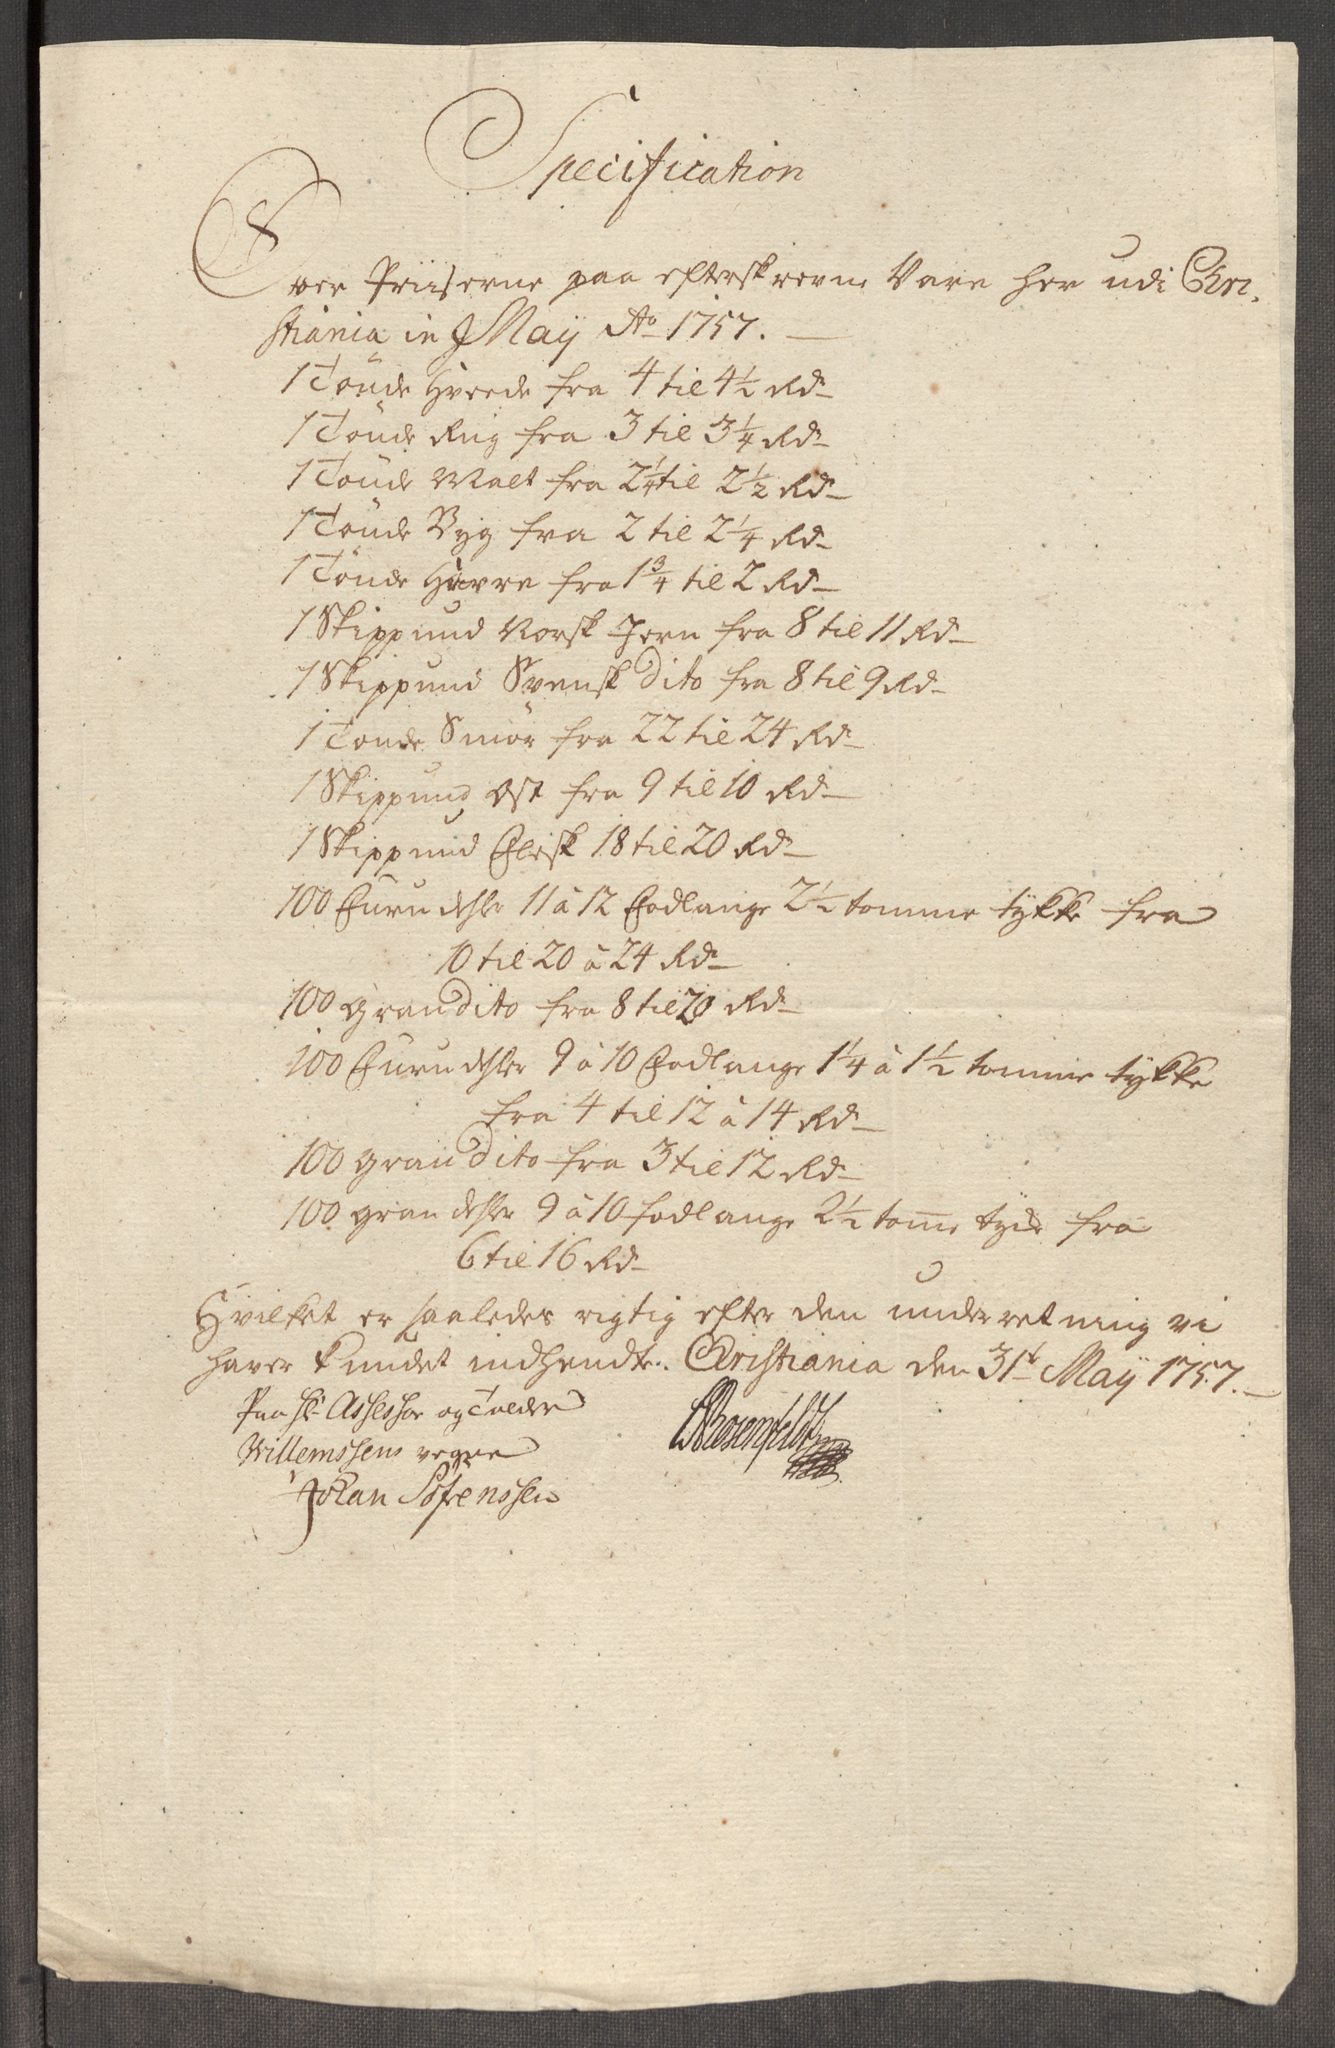 Specification
Over Priiserne paa efterskrevne Vare her udi Chri,
stiania in Maÿ Ao 1757.
1 Tönde Hvede fra 4 til 4½ Rd
1 Tönde Rug fra 3 til 3¼ Rd
1 Tönde Malt fra 2¼ til 2½ Rd
1 Tönde Byg fra 2 til 2¼ Rd
1 Tönde Havre fra 1¾ til 2 Rd
1 Skippund Norsk Jern fra 8 til 11 Rd
1 Skippund Svensk Dito fra 8 til 9 Rd
1 Tönde Smör fra 22 til 24 Rd
1 Skippund Ost fra 9 til 10 Rd
1 Skippund Flesk 18 til 20 Rd
100 Furu dehler 11 à 12 Fodlange 2½ tomme tÿkke fra
10 til 20 à 24 Rd
100 gran Dito fra 8 til 20 Rd
100 Furu dehler 9 à 10 Fodlange 1¼ à 1½ tomme tÿkke
fra 4 til 12 à 14 Rd
100 gran Dito fra 3 til 12 Rd
100 gran dehler 9 à 10 fodlange 2½ tome fra
6 til 16 Rd
Hvilket er saaledes rigtig efter den underretning vi
haver kundet indhendte. Christiania den 31t Maÿ 1757.
Paa Hr Assessor og Tolder
Willemssens vegne
Johan Sörenssen
Rosenfeldt